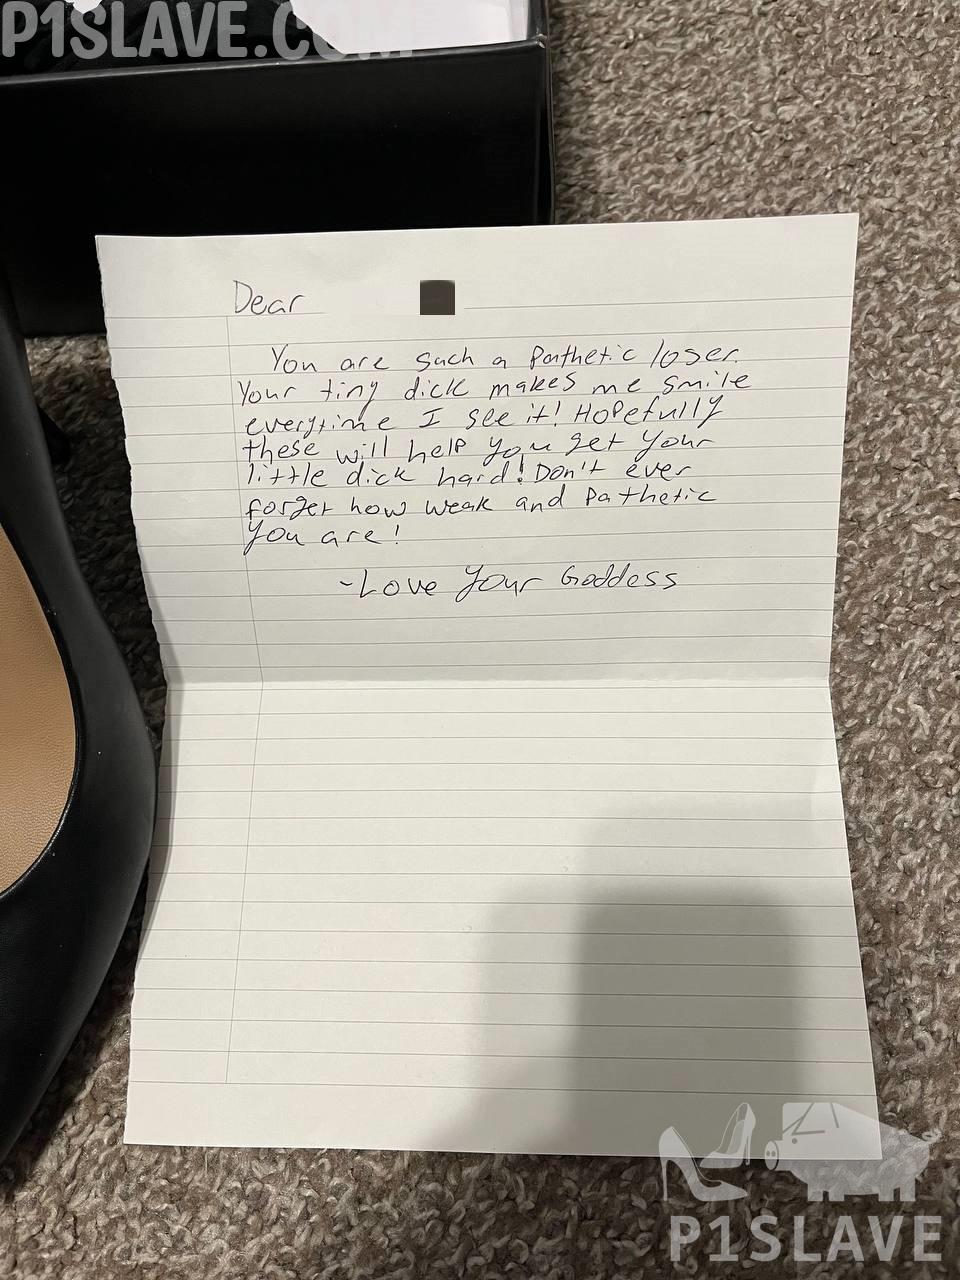 P1SLAVE.COM
Dear
You are such a Pathetic loser.
Your tiny dick makes me smile
everytime I see it! Hopefully
these will help you get your
little dick hard! Don't ever
forget how weak and Pathetic
you are!
-Love Your Goddess
P1SLAVE